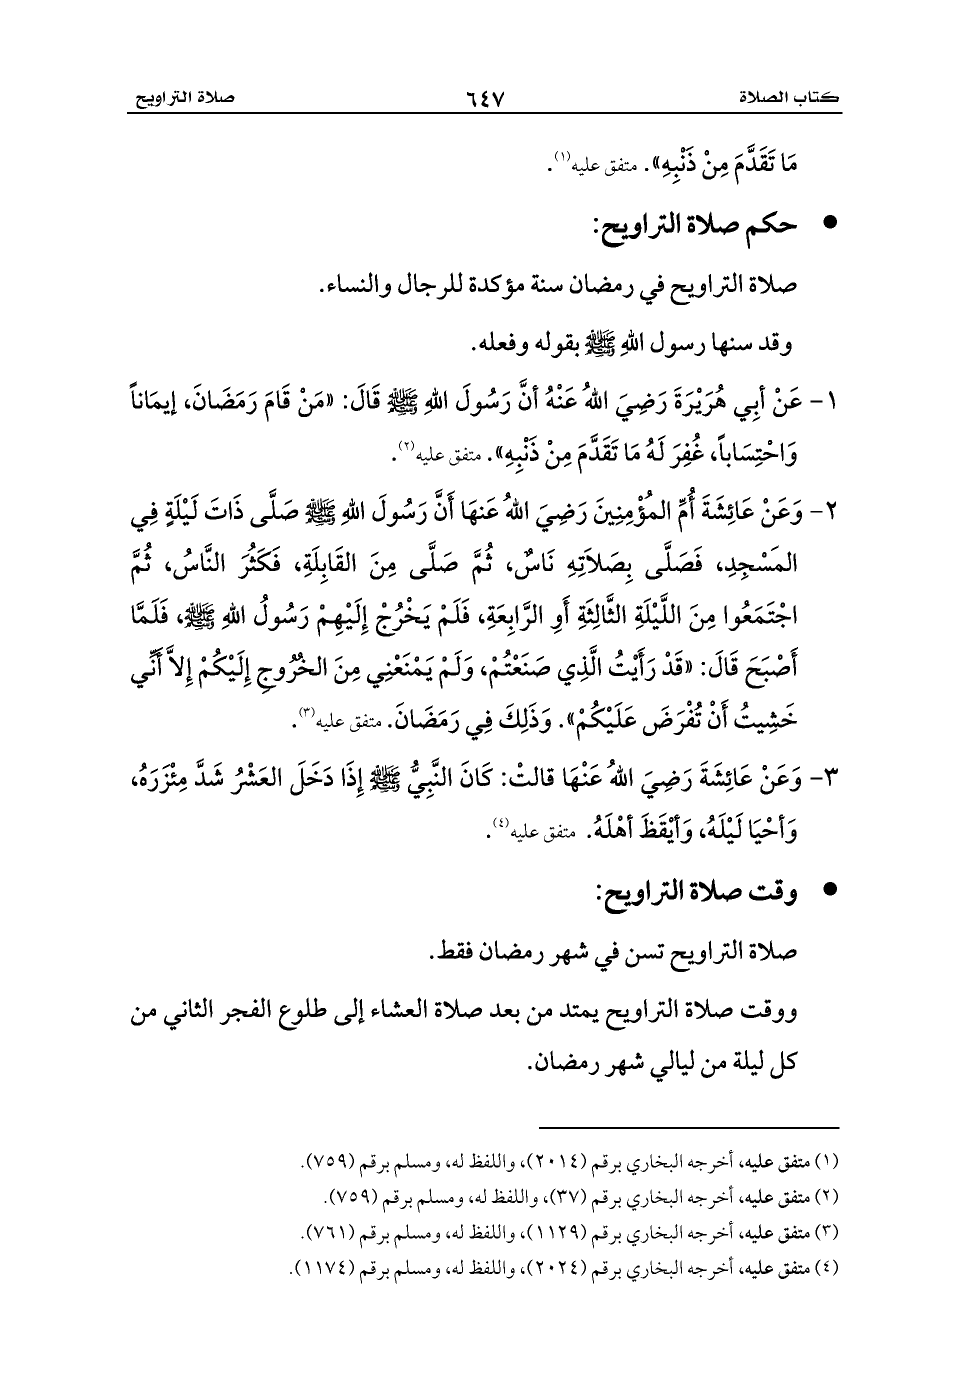 كتاب الصلاة ٦٤٧ صلاة التراويح
مَا تَقَدَّمَ مِنْ ذَنْبِهِ». متفق عليه(١).
● حكم صلاة التراويح:
صلاة التراويح في رمضان سنة مؤكدة للرجال والنساء.
وقد سنها رسول اللهِ ﷺ بقوله وفعله.
١- عَنْ أبِي هُرَيْرَةَ رَضِيَ اللهُ عَنْهُ أنَّ رَسُولَ اللهِ ﷺ قَالَ: «مَنْ قَامَ رَمَضَانَ، إيمَاناً
وَاحْتِسَاباً، غُفِرَ لَهُ مَا تَقَدَّمَ مِنْ ذَنْبِهِ». متفق عليه(٢).
٢- وَعَنْ عَائِشَةَ أُمِّ المُؤْمِنِينَ رَضِيَ اللهُ عَنهَا أَنَّ رَسُولَ اللهِ ﷺ صَلَّى ذَاتَ لَيْلَةٍ فِي
المَسْجِدِ، فَصَلَّى بِصَلاَتِهِ نَاسٌ، ثُمَّ صَلَّى مِنَ القَابِلَةِ، فَكَثُرَ النَّاسُ، ثُمَّ
اجْتَمَعُوا مِنَ اللَّيْلَةِ الثَّالِثَةِ أَوِ الرَّابِعَةِ، فَلَمْ يَخْرُجْ إِلَيْهِمْ رَسُولُ اللهِ ﷺ، فَلَمَّا
أَصْبَحَ قَالَ: «قَدْ رَأَيْتُ الَّذِي صَنَعْتُمْ، وَلَمْ يَمْنَعْنِي مِنَ الخُرُوجِ إِلَيْكُمْ إِلاَّ أَنِّي
خَشِيتُ أَنْ تُفْرَضَ عَلَيْكُمْ». وَذَلِكَ فِي رَمَضَانَ. متفق عليه(٣).
٣- وَعَنْ عَائِشَةَ رَضِيَ اللهُ عَنْهَا قالتْ: كَانَ النَّبِيُّ ﷺ إِذَا دَخَلَ العَشْرُ شَدَّ مِئْزَرَهُ،
وَأحْيَا لَيْلَهُ، وَأيْقَظَ أهْلَهُ. متفق عليه(٤).
● وقت صلاة التراويح:
صلاة التراويح تسن في شهر رمضان فقط.
ووقت صلاة التراويح يمتد من بعد صلاة العشاء إلى طلوع الفجر الثاني من
كل ليلة من ليالي شهر رمضان.
(١) متفق عليه، أخرجه البخاري برقم (٢٠١٤)، واللفظ له، ومسلم برقم (٧٥٩).
(٢) متفق عليه، أخرجه البخاري برقم (٣٧)، واللفظ له، ومسلم برقم (٧٥٩).
(٣) متفق عليه، أخرجه البخاري برقم (١١٢٩)، واللفظ له، ومسلم برقم (٧٦١).
(٤) متفق عليه، أخرجه البخاري برقم (٢٠٢٤)، واللفظ له، ومسلم برقم (١١٧٤).